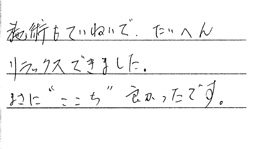 施術もていねいで、たいへん
リラックスできました。
まさに"ここち"良かったです。